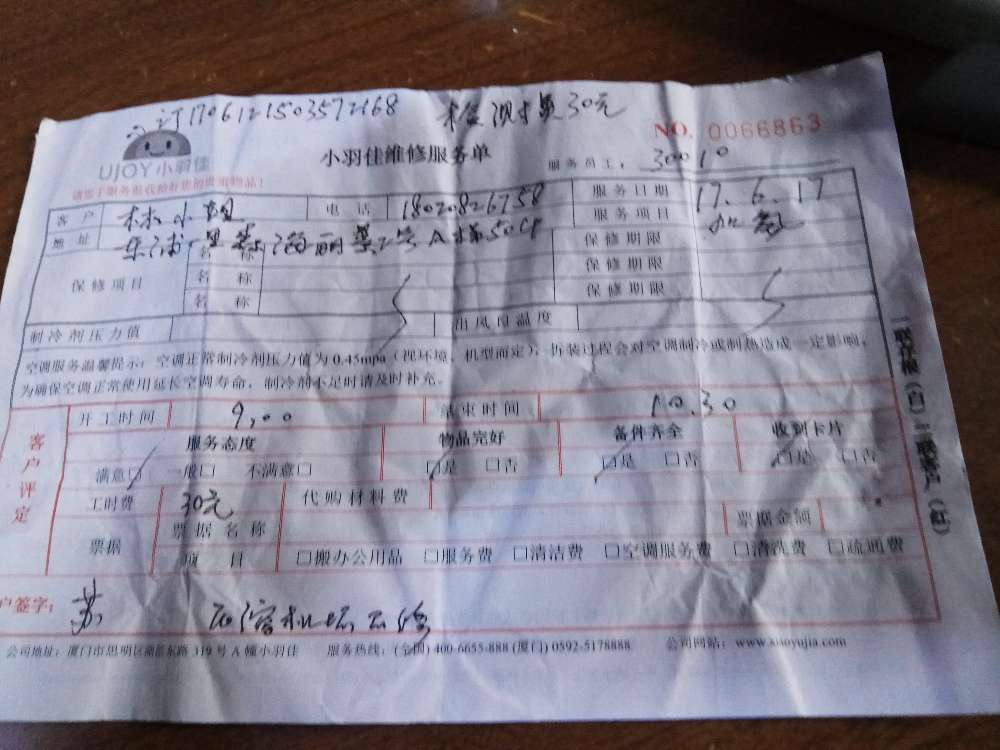 订170612150357268 检测费30元
UJOY小羽佳
小羽佳维修服务单
NO. 0066863
服务员工: 30010
客户 林小姐 电话 18020826758 服务日期 17.6.17
服务项目 加氟
地址 海丽景2号A梯50
保修项目 名称 保修期限
名称 保修期限
名称 保修期限
制冷剂压力值 出风口温度
空调服务温馨提示: 空调正常制冷剂压力值为0.45mpa (视环境、机型而定) 拆装过程会对空调制冷或制热造成一定影响,
为确保空调正常使用延长空调寿命,制冷剂不足时请及时补充。
一联存根(白) 二联客户(红)
客户评定
开工时间 9,00 结束时间 10.30
服务态度 物品完好 备件齐全 收到卡片
满意□ 一般□ 不满意□ □是 □否 □是 □否 □是 □否
工时费 30元 代购材料费
票据 票据名称 票据金额
项目 □搬办公用品 □服务费 □清洁费 □空调服务费 □清洗费 □疏通费
户签字: 苏 机坏不修
公司地址: 厦门市思明区 东路 319 号 A 幢小羽佳 服务热线: (全国) 400-6655-888 (厦门) 0592-5178888 公司网站: www.xiaoyujia.com